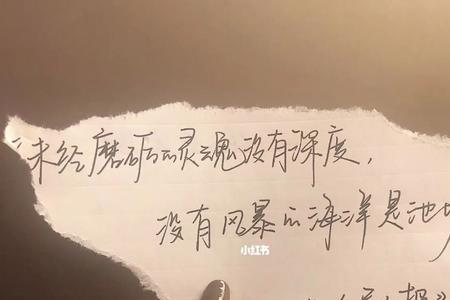 小红书
“未经磨砺的灵魂没有深度，
没有风暴的海洋是池
小红书